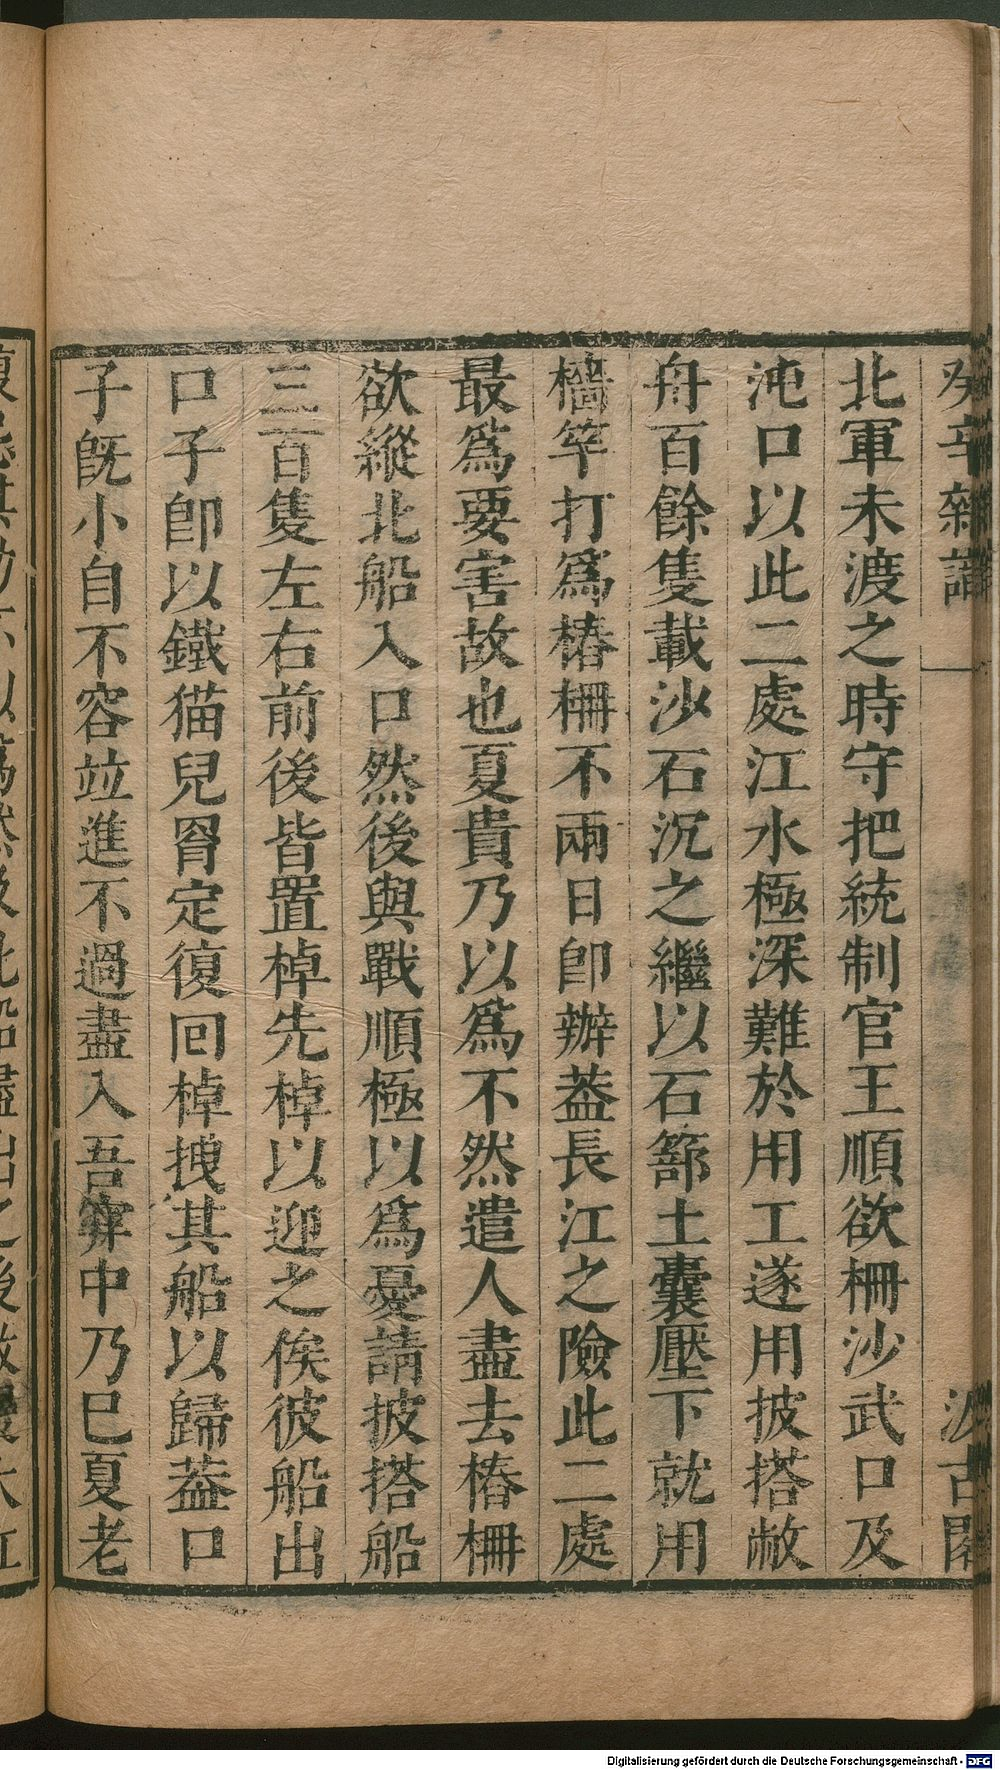 癸辛雜識
汲古閣
北軍未渡之時守把統制官王順欲柵沙武口及
沌口以此二處江水極深難於用工遂用披搭敝
舟百餘隻載沙石沉之繼以石篰土囊壓下就用
檣竿打爲樁柵不兩日卽辦葢長江之險此二處
最爲要害故也夏貴乃以爲不然遣人盡去樁柵
欲縱北船入口然後與戰順極以爲憂請披搭船
三百隻左右前後皆置棹先棹以迎之俟彼船出
口子卽以鐵猫兒胷定復回棹拽其船以歸葢口
子旣小自不容竝進不過盡入吾穽中乃巳夏老
Digitalisierung gefördert durch die Deutsche Forschungsgemeinschaft - DFG